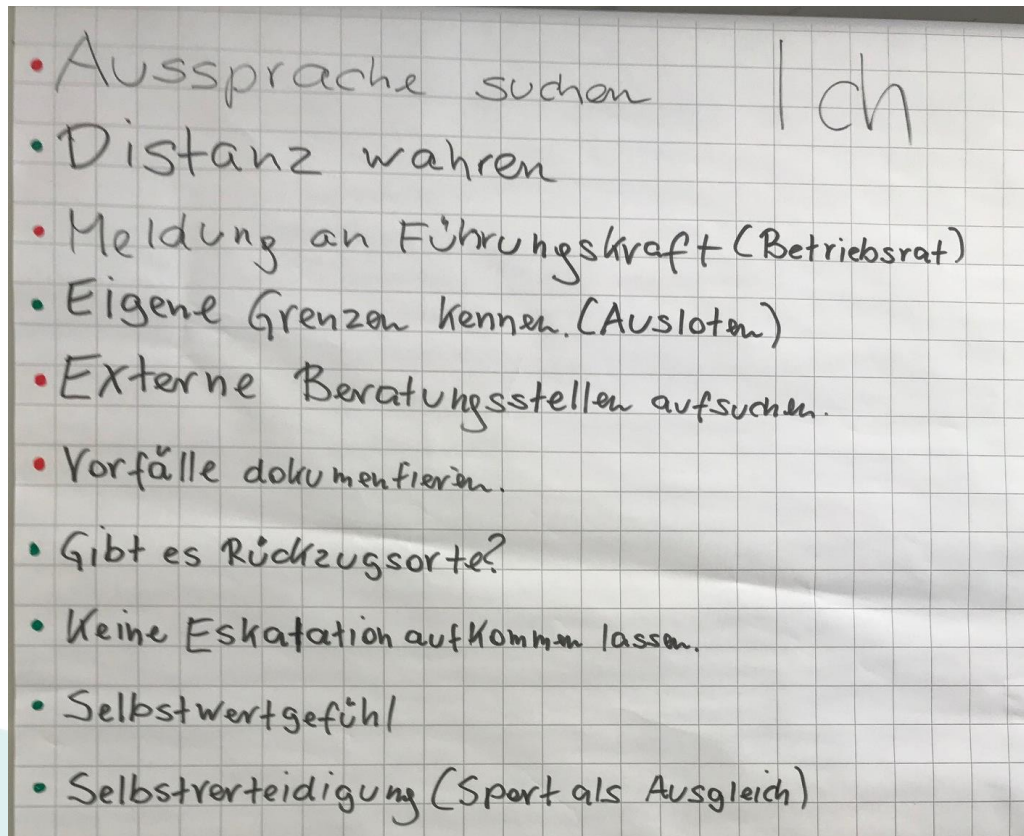 • Aussprache suchen Ich
• Distanz wahren
• Meldung an Führungskraft (Betriebsrat)
• Eigene Grenzen kennen. (Ausloten)
• Externe Beratungsstellen aufsuchen.
• Vorfälle dokumentieren.
• Gibt es Rückzugsorte?
• Keine Eskatation aufkommen lassen.
• Selbstwertgefühl
• Selbstverteidigung (Sport als Ausgleich)